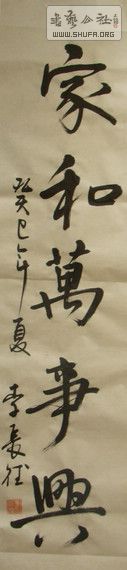 書藝公社
WWW.SHUFA.ORG
家和萬事興
癸巳年夏
李長征